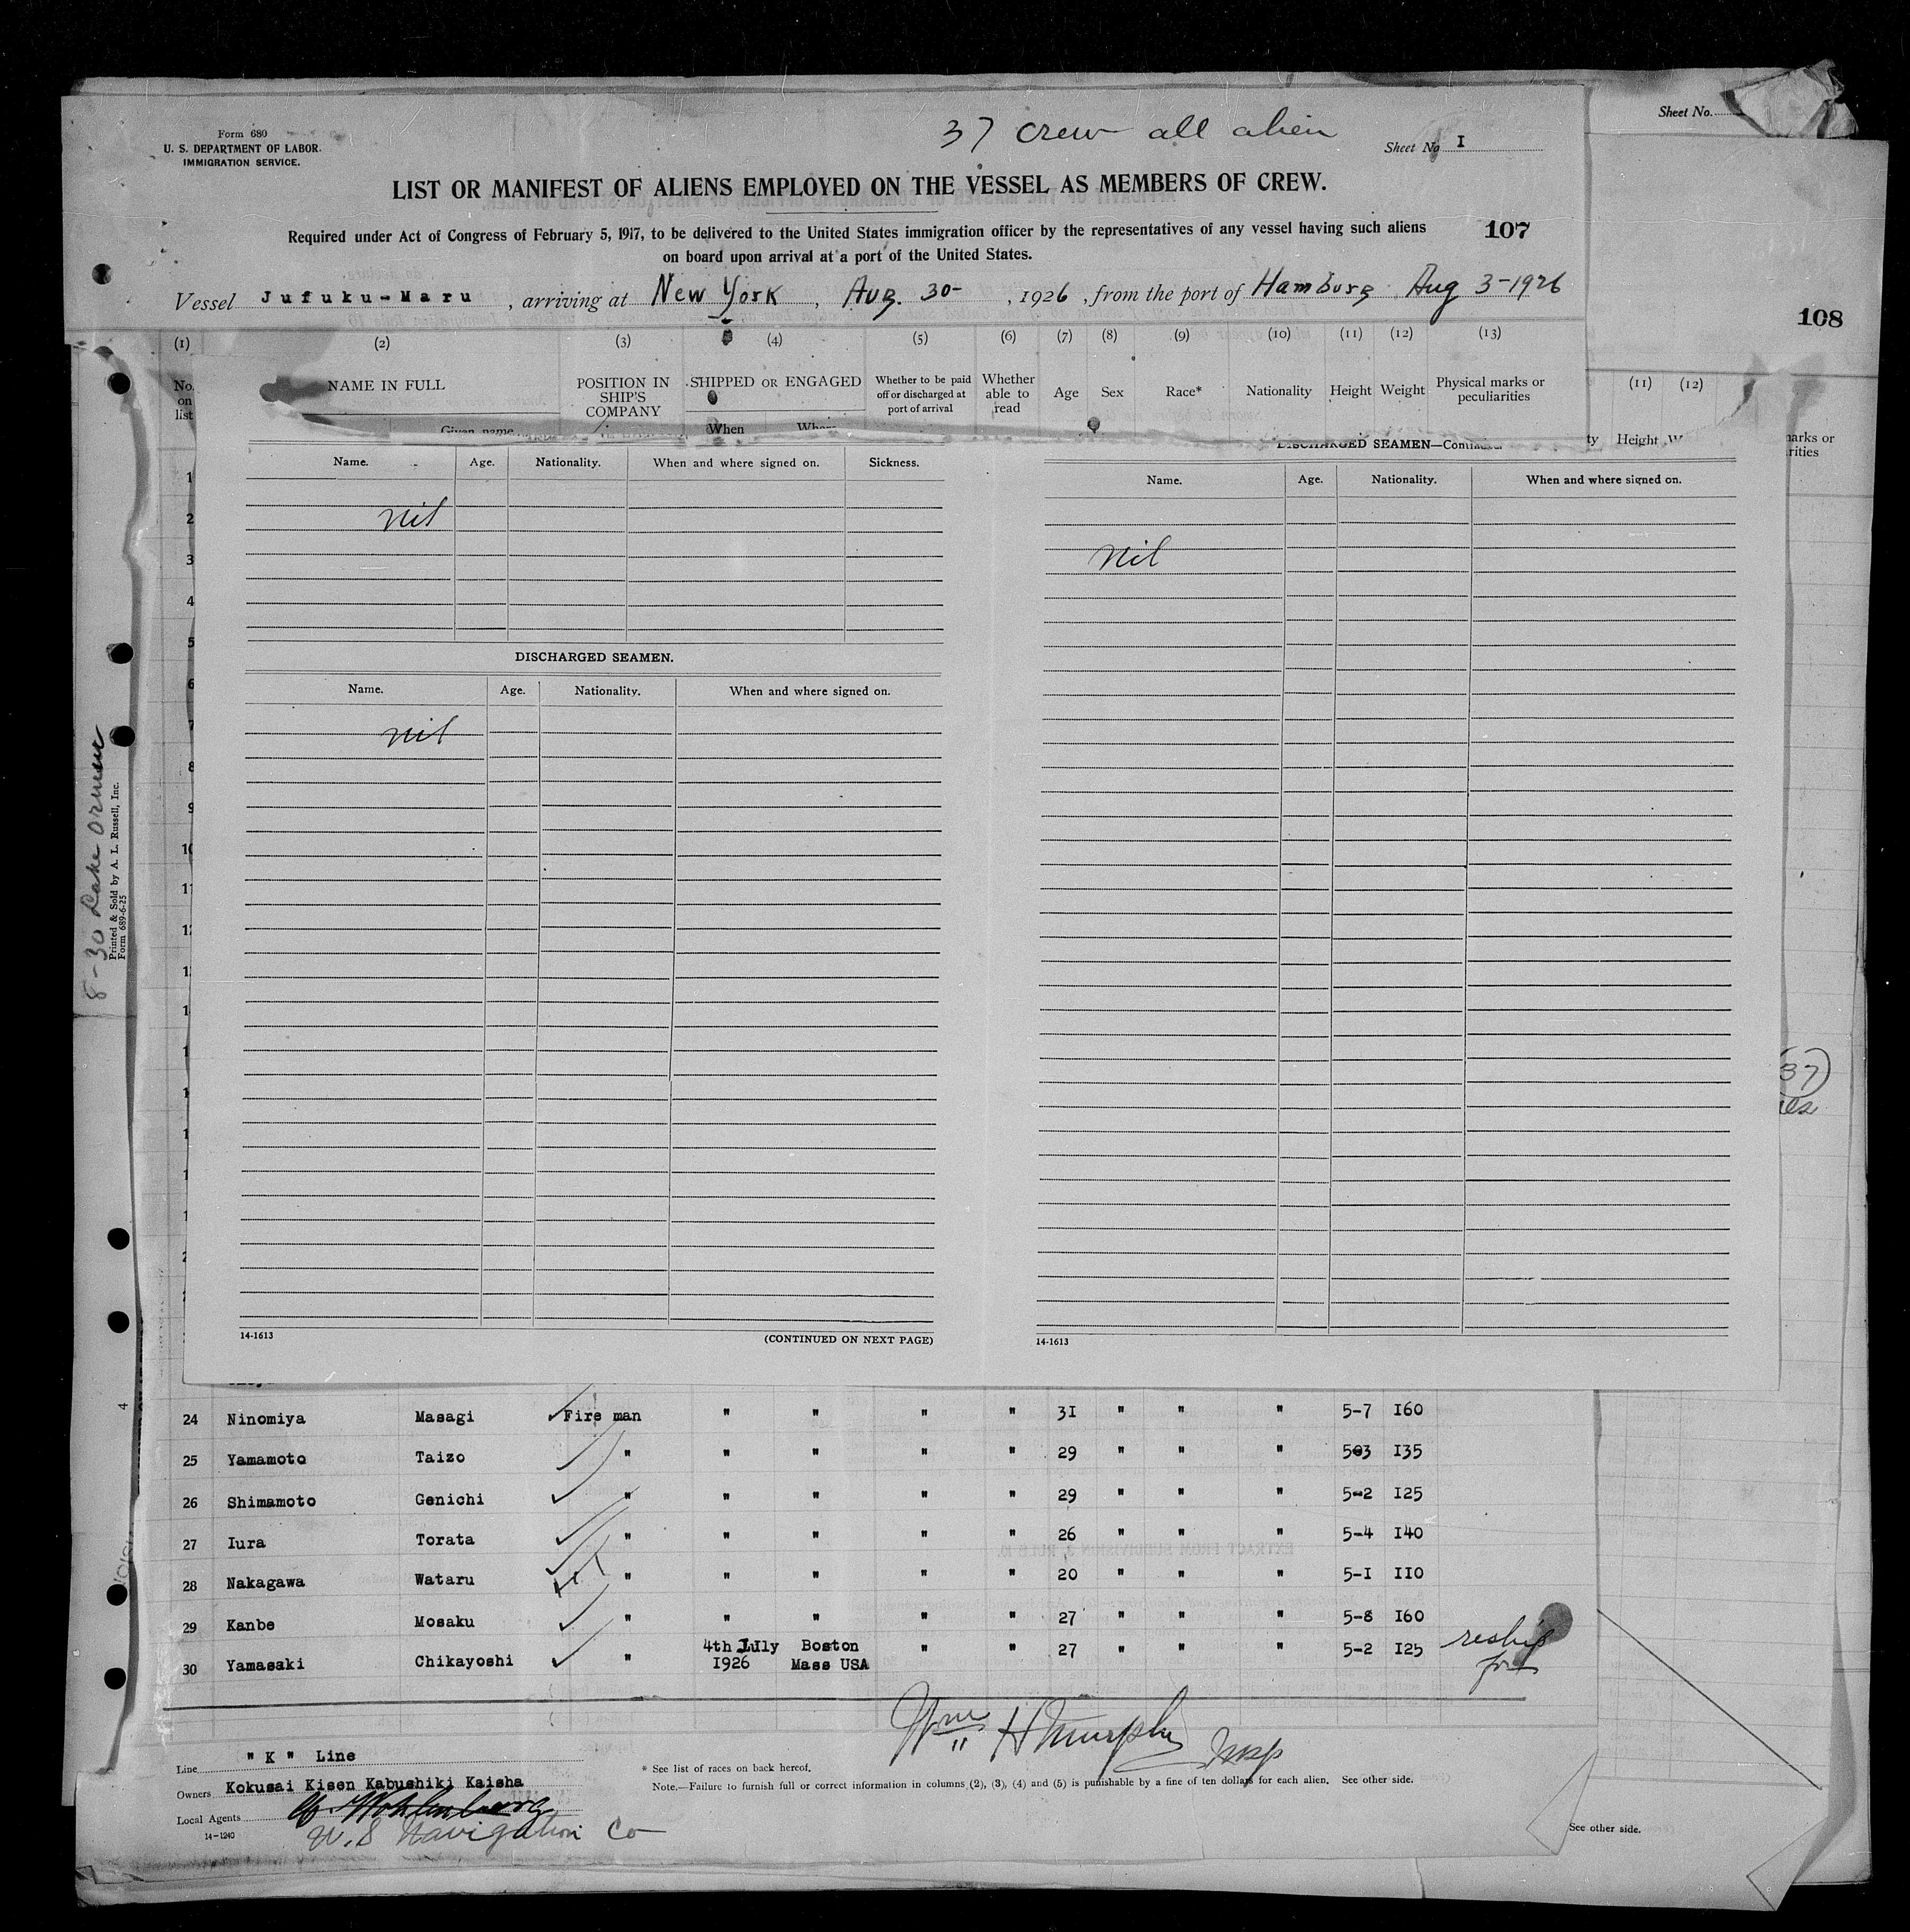 Sheet No.
37 crew all alien
Form 680
U. S. DEPARTMENT OF LABOR.
IMMIGRATION SERVICE.
Sheet No I
LIST OR MANIFEST OF ALIENS EMPLOYED ON THE VESSEL AS MEMBERS OF CREW.
Required under Act of Congress of February 5, 1917, to be delivered to the United States immigration officer by the representatives of any vessel having such aliens
on board upon arrival at a port of the United States.
107
Vessel Jufuku-Maru , arriving at New York , Aug. 30- , 1926 , from the port of Hamburg Aug 3-1926
108
(1) (2) (3) (4) (5) (6) (7) (8) (9) (10) (11) (12) (13)
No. on list
NAME IN FULL
POSITION IN SHIP'S COMPANY
SHIPPED OR ENGAGED
Whether to be paid off or discharged at port of arrival
Whether able to read
Age
Sex
Race*
Nationality
Height
Weight
Physical marks or peculiarities
(11) (12)
Given name
When
Height
DISCHARGED SEAMEN—Continued
Name. Age. Nationality. When and where signed on. Sickness.
nil
DISCHARGED SEAMEN.
Name. Age. Nationality. When and where signed on.
nil
14-1613
(CONTINUED ON NEXT PAGE)
Name. Age. Nationality. When and where signed on.
nil
14-1613
1
2
3
4
5
6
7
8
9
10
11
37
Printed & Sold by A. L. Russell, Inc.
Form 689-6-25
4
24 Ninomiya Masagi Fire man " " " " 31 " " " 5-7 I60
25 Yamamoto Taizo " " " " " 29 " " " 5-3 I35
26 Shimamoto Genichi " " " " " 29 " " " 5-2 I25
27 Iura Torata " " " " " 26 " " " 5-4 I40
28 Nakagawa Wataru " " " " " 20 " " " 5-I II0
29 Kanbe Mosaku " " " " " 27 " " " 5-8 I60
30 Yamasaki Chikayoshi " 4th July I926 Boston Mass USA " " 27 " " " 5-2 I25
Wm H Murphy Insp
Line " K " Line
Owners Kokusai Kisen Kabushiki Kaisha
Local Agents
U. S Navigation Co
14-1240
* See list of races on back hereof.
Note.—Failure to furnish full or correct information in columns (2), (3), (4) and (5) is punishable by a fine of ten dollars for each alien. See other side.
See other side.